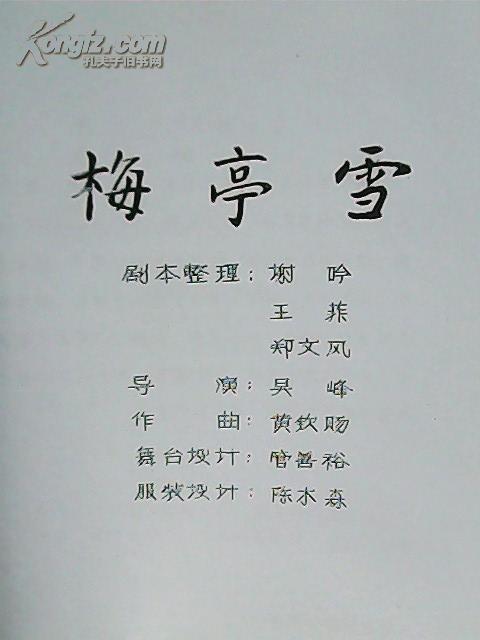 Kongfz.com
孔夫子旧书网
梅亭雪
剧本整理：谢吟
王菲
郑文风
导演：吴峰
作曲：黄钦旸
舞台设计：管善裕
服装设计：陈水森